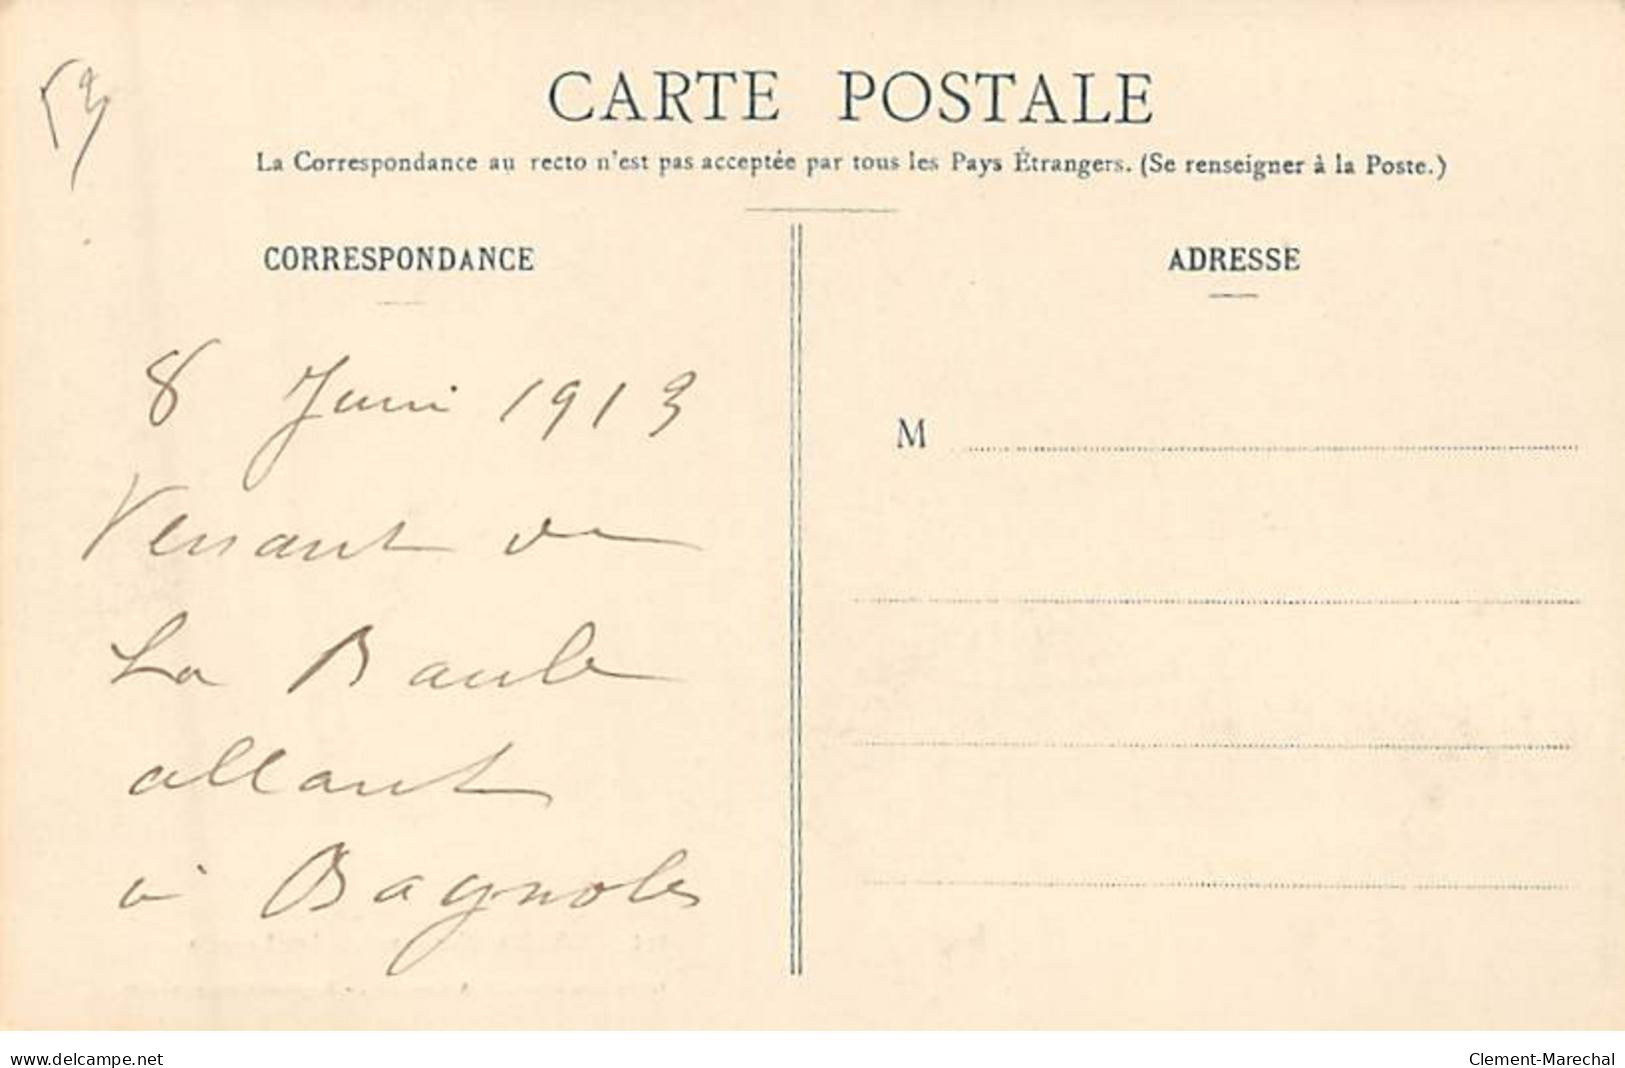 53
CARTE POSTALE
La Correspondance au recto n'est pas acceptée par tous les Pays Étrangers. (Se renseigner à la Poste.)
CORRESPONDANCE
ADRESSE
8 Juin 1913
Venant de
La Baule
allant
à Bagnoles
M
www.delcampe.net
Clement-Marechal